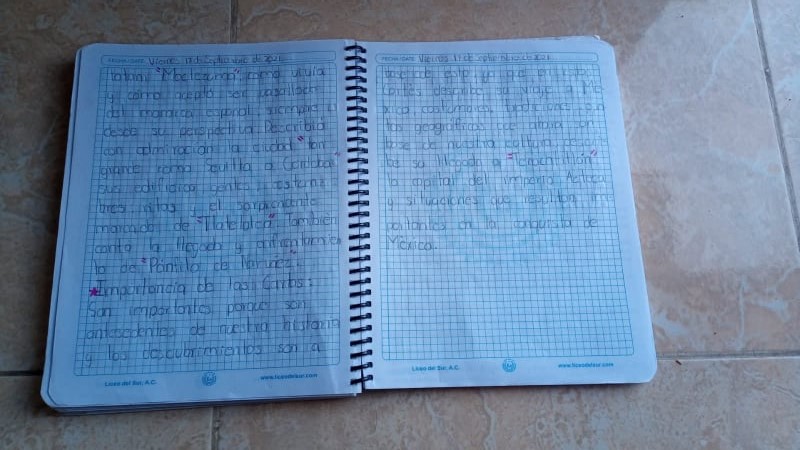 FECHA/DATE Viernes 17 de Septiembre de 2021
"Moctezuma" como vivía
y como aceptó ser vasallo
del monarca español siempre
desde su perspectiva. Describía
con admiración la ciudad "tan
grande como Sevilla o Cordoba"
sus edificios, gentes, costum
bres, ritos y el sorprendente
mercado de "Tlatelolco". También
conto la llegada y enfrentamien
to de "Pánfilo de Narvaez".
Importancia de las Cartas:
Son importantes porque son
antecedentes de nuestra historia
y los descubrimientos son a
Liceo del Sur, A.C.
www.liceodelsur.com
FECHA/DATE Viernes 17 de Septiembre de 2021
base de esto ya que en
Cortés describe su viaje a Mé
xico, costumbres, tradiciones,
geográficas que ahora son
base de nuestra cultura,
su llegada a "Tenochtitlán"
la capital del imperio Azteca
y situaciones que resultan im
portantes en la conquista de
México.
Liceo del Sur, A.C.
www.liceodelsur.com